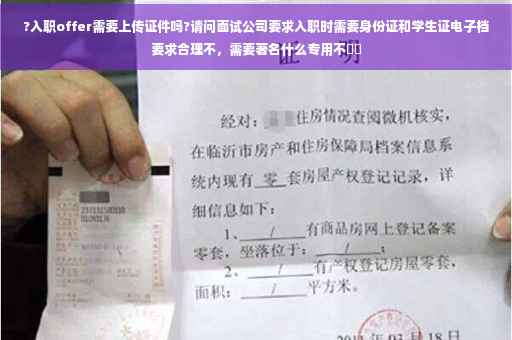 ?入职offer需要上传证件吗?请问面试公司要求入职时需要身份证和学生证电子档
要求合理不，需要著名什么专用不
证 明
经对：住房情况查阅微机核实，
在临沂市房产和住房保障局档案信息系
统内现有 零 套房屋产权登记记录，详
细信息如下：
1、 / 有商品房网上登记备案
零套，坐落位于： / ；
2、 / 有产权登记房屋零套，
面积： / 平方米。
03 月 18 日